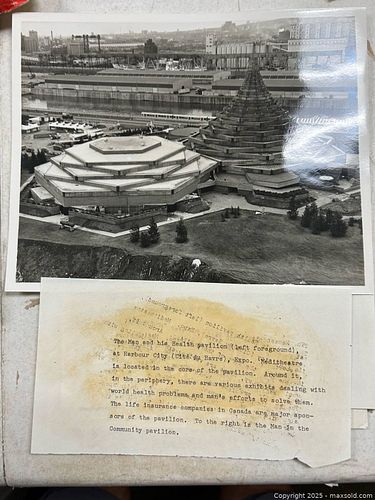 The Man and his Health pavilion (left foreground),
at Harbour City (Cité du Havre), Expo. Meditheatre
is located in the core of the pavilion. Around it,
in the periphery, there are various exhibits dealing with
world health problems and man's efforts to solve them.
The life insurance companies in Canada are major spon-
sors of the pavilion. To the right is the Man in the
Community pavilion.
Copyright © 2025 - maxsold.com